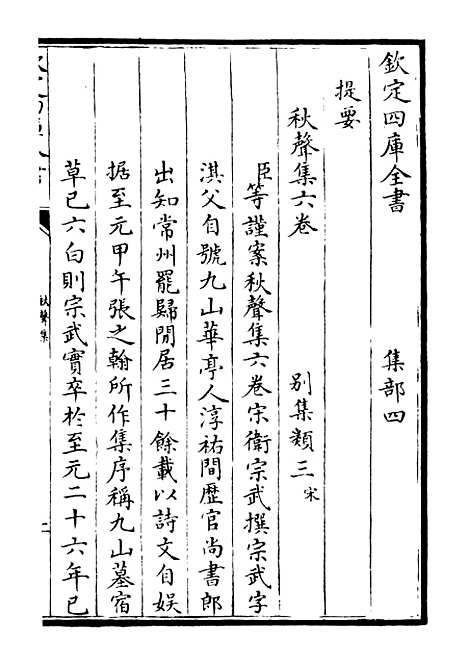 欽定四庫全書　集部四
提要
秋聲集六卷　別集類三宋
臣等謹案秋聲集六卷宋衛宗武撰宗武字
淇父自號九山華亭人淳祐間歷官尚書郎
出知常州罷歸閒居三十餘載以詩文自娱
据至元甲午張之翰所作集序稱九山墓宿
草已六白則宗武實卒於至元二十六年已
秋聲集